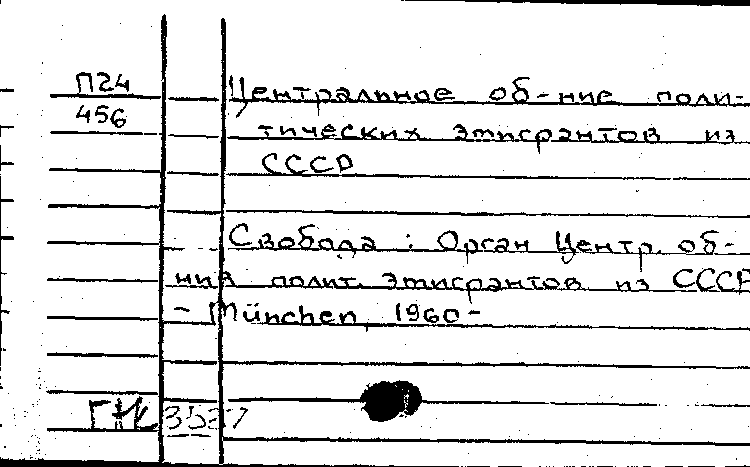 П24
456
Центральное об-ние поли-
тических эмигрантов из
СССР
Свобода : Орган Центр. об-
ния полит. эмигрантов из СССР
- München, 1960-
ГНК 3537